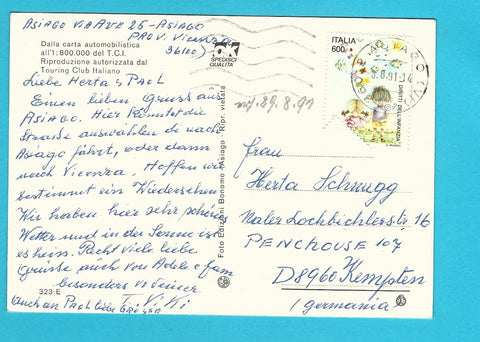 ASIAGO VIA AVE 25 - ASIAGO
PROV. VICENZA
36100)
Dalla carta automobilistica
all'1:800.000 del T.C.I.
Riproduzione autorizzata dal
Touring Club Italiano
SPEDISCI
QUALITÀ
ITALIA
600
DIRITTI DELL'INFANZIA
Liebe Herta u Paol
Einen lieben Gruss aus
Asiago. Hier könnt ihr die
Strasse auswählen die nach
Asiago fährt, oder dann
nach Vicenza. Hoffen wir
bestimmt ein Wiedersehen
Wir haben hier sehr schönes
Wetter und in der Sonne ist
es heiss. Recht viele liebe
Grüsse auch von Adele u fam
besonders von einer
Viki
auch an Paol liebe Grüsse
29.8.91
323-E
Foto Edizioni Bonomo - Asiago - Ripr. vietata
Frau
Herta Schnugg
Maler Lochbichlerstr. 16
PENCHOUSE 107
D8960 Kempten
(germania)